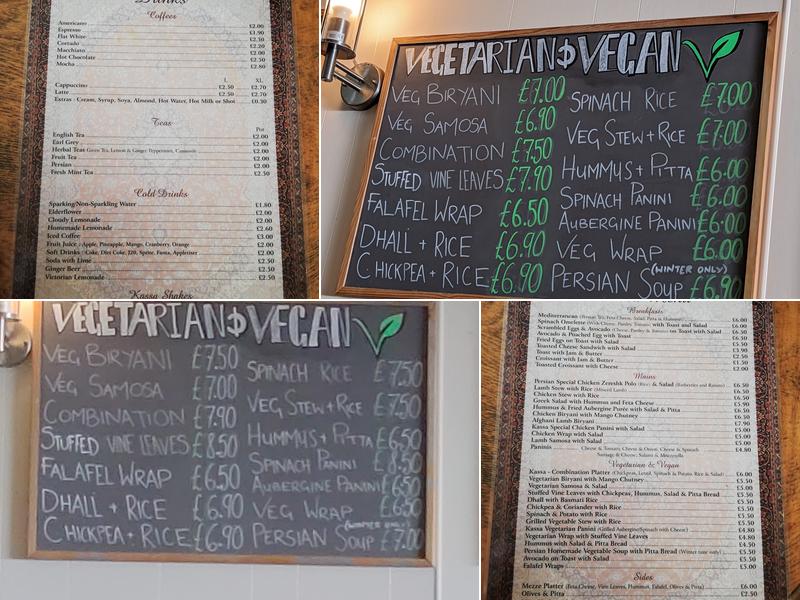 Drinks
Coffees
Americano £2.00
Espresso £1.90
Flat White £2.50
Cortado £2.20
Macchiato £2.00
Hot Chocolate £2.50
Mocha £2.80
L XL
Cappuccino £2.50 £2.70
Latte £2.50 £2.70
Extras : Cream, Syrup, Soya, Almond, Hot Water, Hot Milk or Shot £0.30
Teas
Pot
English Tea £2.00
Earl Grey £2.00
Herbal Teas Green Tea, Lemon & Ginger, Peppermint, Camomile £2.00
Fruit Tea £2.00
Persian £2.00
Fresh Mint Tea £2.50
Cold Drinks
Sparking/Non-Sparkling Water £1.80
Elderflower £2.00
Cloudy Lemonade £2.00
Homemade Lemonade £2.60
Iced Coffee £3.00
Fruit Juice : Apple, Pineapple, Mango, Cranberry, Orange £2.00
Soft Drinks : Coke, Diet Coke, J20, Sprite, Fanta, Appletiser £2.00
Soda with Lime £2.50
Ginger Beer £2.50
Victorian Lemonade £2.50
Kassa Shakes
VEGETARIAN & VEGAN
VEG BIRYANI £7.00
VEG SAMOSA £6.90
COMBINATION £7.50
STUFFED VINE LEAVES £7.90
FALAFEL WRAP £6.50
DHALL + RICE £6.90
CHICKPEA + RICE £6.90
SPINACH RICE £7.00
VEG STEW + RICE £7.00
HUMMUS + PITTA £6.00
SPINACH PANINI £6.00
AUBERGINE PANINI £6.00
VEG WRAP £6.00
(WINTER ONLY)
PERSIAN SOUP £6.90
VEGETARIAN & VEGAN
VEG BIRYANI £7.50
VEG SAMOSA £7.00
COMBINATION £7.90
STUFFED VINE LEAVES £8.50
FALAFEL WRAP £6.50
DHALL + RICE £6.90
CHICKPEA + RICE £6.90
SPINACH RICE £7.50
VEG RICE £7.50
HUMMUS + PITTA £6.50
SPINACH PANINI
AUBERGINE PANINI
VEG WRAP £6.50
(WINTER ONLY)
PERSIAN SOUP £7.00
Breakfasts
Mediterranean (Persian Tea, Feta Cheese, Salad, Pitta & Hummus) £6.00
Spinach Omelette (With Cheese, Parsley, Tomato) with Toast and Salad £6.00
Scrambled Eggs & Avocado (Cheese, Parsley & Tomato) on Toast with Salad £6.50
Avocado & Poached Egg with Toast £6.50
Fried Eggs on Toast with Salad £5.50
Toasted Cheese Sandwich with Salad £3.90
Toast with Jam & Butter £2.50
Croissant with Jam & Butter £1.50
Toasted Croissant with Cheese £2.00
Mains
Persian Special Chicken Zereshk Polo (Rice) & Salad (Barberries and Raisins) £6.50
Lamb Stew with Rice (Minced Lamb) £6.50
Chicken Stew with Rice £6.50
Greek Salad with Hummus and Feta Cheese £5.90
Hummus & Fried Aubergine Purée with Salad & Pitta £6.50
Chicken Biryani with Mango Chutney £6.50
Afghani Lamb Biryani £7.90
Kassa Special Chicken Panini with Salad £5.00
Chicken Wrap with Salad £5.00
Lamb Samosa with Salad £5.00
Paninis Cheese & Tomato, Cheese & Onion, Cheese & Spinach £4.80
Sausage & Cheese, Salami & Mozzarella
Vegetarian & Vegan
Kassa - Combination Platter (Chickpeas, Lentil, Spinach & Potato, Rice & Salad) £6.00
Vegetarian Biryani with Mango Chutney £5.50
Vegetarian Samosa & Salad £5.00
Stuffed Vine Leaves with Chickpeas, Hummus, Salad & Pitta Bread £5.50
Dhall with Basmati Rice £5.50
Chickpea & Coriander with Rice £5.50
Spinach & Potato with Rice £5.50
Grilled Vegetable Stew with Rice £5.50
Kassa Vegetarian Panini (Grilled Aubergine/Spinach with Cheese) £4.80
Vegetarian Wrap with Stuffed Vine Leaves £4.80
Hummus with Salad & Pitta Bread £4.50
Persian Homemade Vegetable Soup with Pitta Bread (Winter time only) £5.50
Avocado on Toast with Salad £5.50
Falafel Wraps £5.00
Sides
Mezze Platter (Feta Cheese, Vine Leaves, Hummus, Falafel, Olives & Pitta) £6.00
Olives & Pitta £2.50